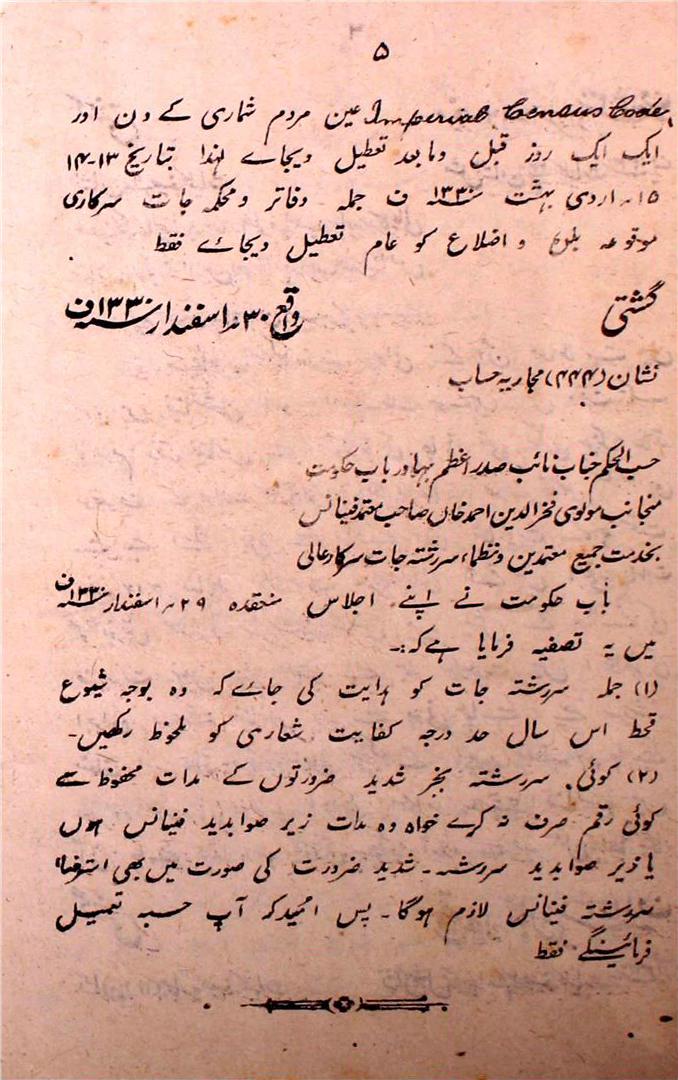 ۵
Imperial Census Code عین مردم شماری کے دن اور
ایک ایک روز قبل و ما بعد تعطیل دیجاے لہذا بتاریخ ۱۳-۱۴
۱۵ ؍ اردی بہشت ۱۳۳۰ ف جملہ دفاتر و محکمہ جات سرکاری
موقوعہ بلدہ و اضلاع کو عام تعطیل دیجاے فقط
گشتی واقع ۳۰ ؍ اسفندار ۱۳۳۰ ف
نشان (۴۴۴) مجاریہ حساب
حسب الحکم جناب نائب صدر اعظم بہادر باب حکومت
منجانب مولوی فخر الدین احمد خاں صاحب معتمد فینانس
بخدمت جمیع معتمدین و نظماء سررشتہ جات سرکار عالی
باب حکومت نے اپنے اجلاس منعقدہ ۲۹ ؍ اسفندار ۱۳۳۰ ف
میں یہ تصفیہ فرمایا ہے کہ :-
(۱) جملہ سررشتہ جات کو ہدایت کی جاے کہ وہ بوجہ شیوع
قحط اس سال حد درجہ کفایت شعاری کو ملحوظ رکھیں -
(۲) کوئی سررشتہ بجز شدید ضرورتوں کے مدات محفوظ سے
کوئی رقم صرف نہ کرے خواہ وہ مدات زیر صوابدید فینانس ہوں
یا زیر صوابدید سررشتہ - شدید ضرورت کی صورت میں بھی استرضاء
سررشتہ فینانس لازم ہوگا - پس امید کہ آپ حسبہ تعمیل
فرمائینگے فقط